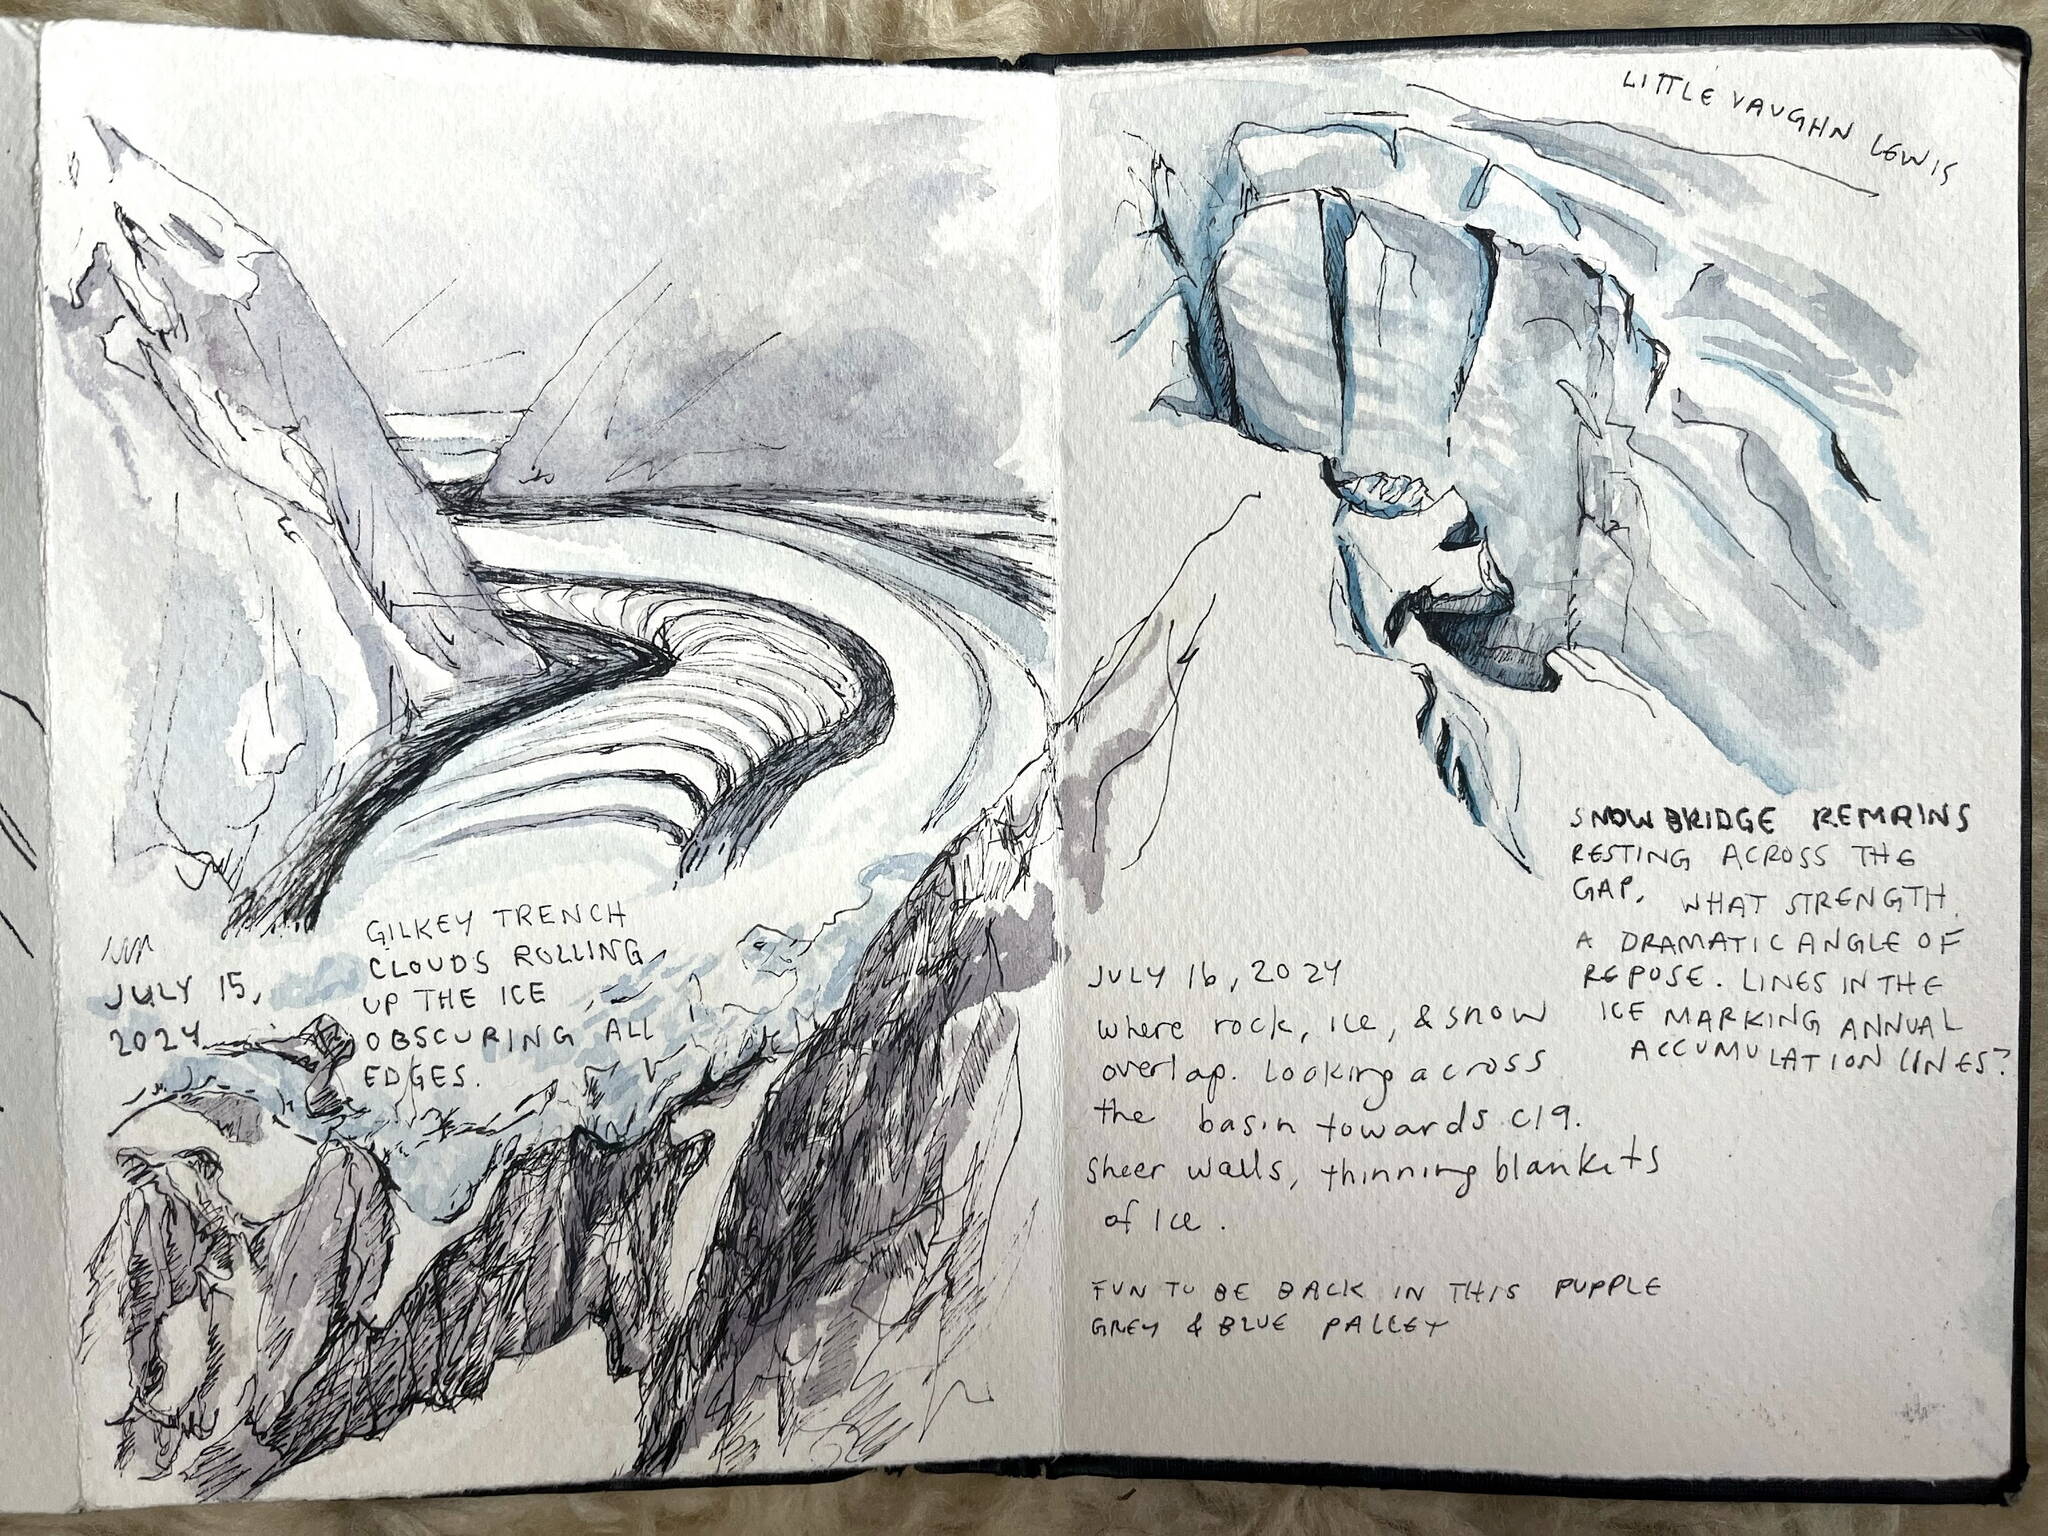 JULY 15,
2024
GILKEY TRENCH
CLOUDS ROLLING
UP THE ICE
OBSCURING ALL
EDGES.
LITTLE VAUGHN LEWIS
SNOWBRIDGE REMAINS
RESTING ACROSS THE
GAP. WHAT STRENGTH.
A DRAMATIC ANGLE OF
REPOSE. LINES IN THE
ICE MARKING ANNUAL
ACCUMULATION LINES?
JULY 16, 2024
where rock, ice, & snow
overlap. Looking across
the basin towards C19.
Sheer walls, thinning blankets
of ice.
FUN TO BE BACK IN THIS PUPPLE
GREY & BLUE PALLEY